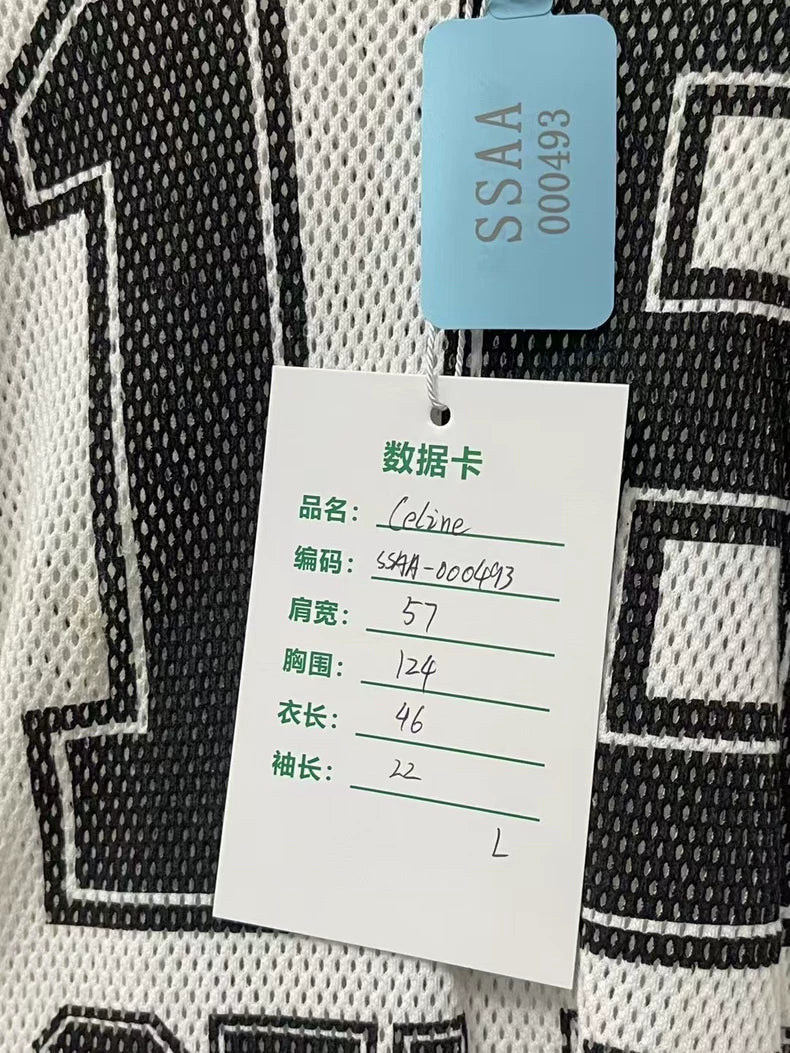 SSAA
000493
数据卡
品名: Celine
编码: SSAA-000493
肩宽: 57
胸围: 124
衣长: 46
袖长: 22
L